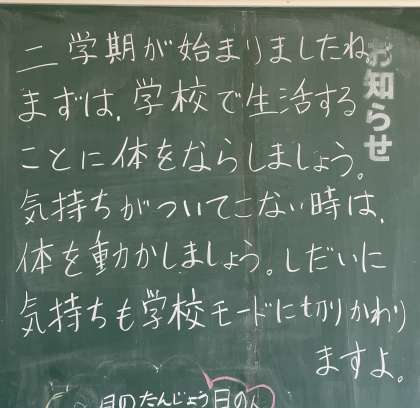 お知らせ
二学期が始まりましたね。
まずは、学校で生活する
ことに体をならしましょう。
気持ちがついてこない時は、
体を動かしましょう。しだいに
気持ちも学校モードにも切りかわり
ますよ。
月のたんじょう日の人